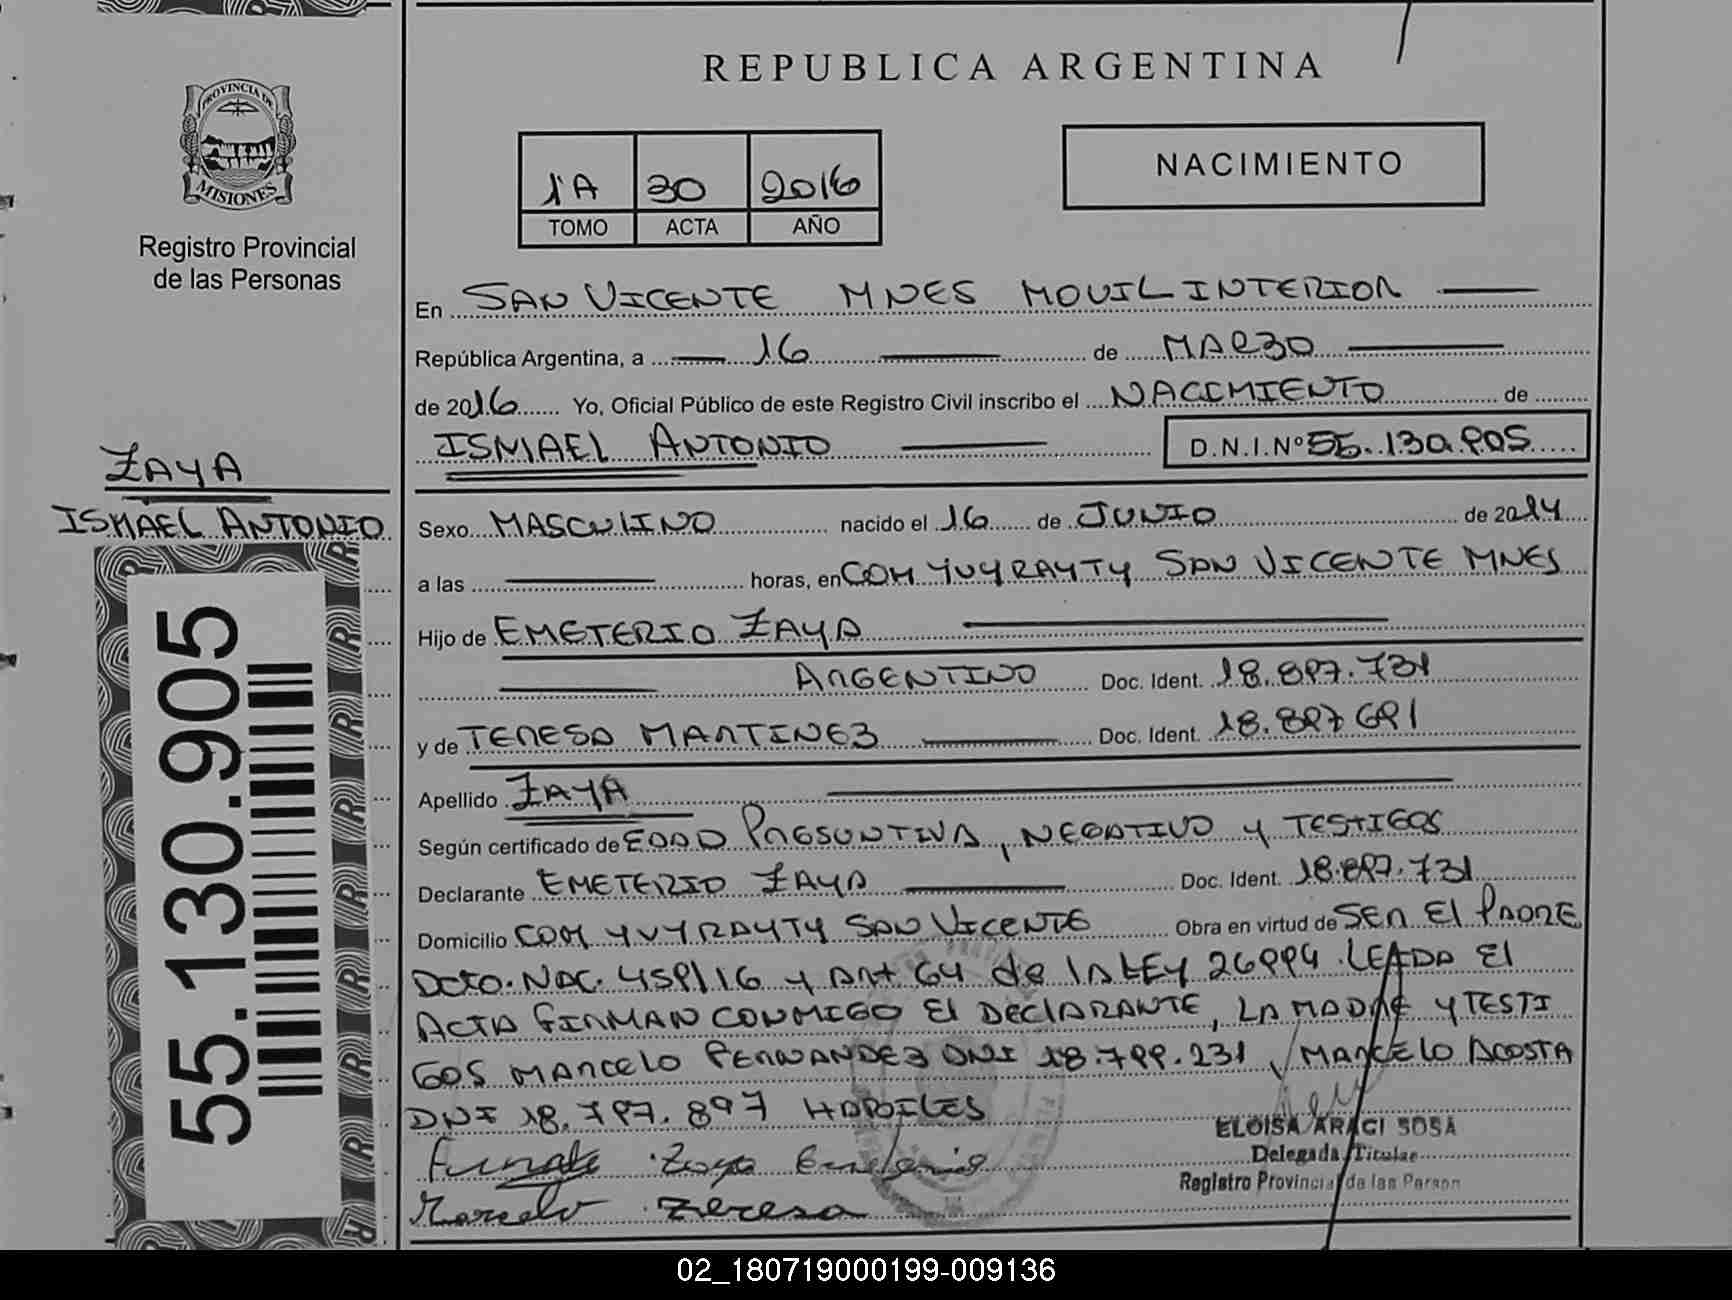 REPUBLICA ARGENTINA
PROVINCIA DE
MISIONES
Registro Provincial
de las Personas
1ºA 30 2016
TOMO ACTA AÑO
NACIMIENTO
En SAN VICENTE MNES MOVIL INTERIOR
República Argentina, a 16 de MARZO
de 2016 Yo, Oficial Público de este Registro Civil inscribo el NACIMIENTO de
ISMAEL ANTONIO D.N.I.Nº 55.130.905
ZAYA
ISMAEL ANTONIO
55.130.905
Sexo MASCULINO nacido el 16 de JUNIO de 2014
a las horas, en COM YVYRAYTY SAN VICENTE MNES
Hijo de EMETERIO ZAYA
ARGENTINO Doc. Ident. 18.897.731
y de TERESA MARTINEZ Doc. Ident. 18.897691
Apellido ZAYA
Según certificado de EDAD PRESUNTIVA, NEGATIVO Y TESTIGOS
Declarante EMETERIO ZAYA Doc. Ident. 18.897.731
Domicilio COM YVYRAYTY SAN VICENTE Obra en virtud de SER El PADRE
DCTO. NAC. 459/16 Y ART 64 de la LEY 26994. LEIDA El
ACTA FIRMAN CONMIGO El DECLARANTE, LA MADRE Y TESTI
GOS MARCELO FERNANDEZ DNI 18.799.231, MARCELO ACOSTA
DNI 18.797.897 HABILES
ELOISA ARACI SOSA
Delegada Titular
Registro Provincial de las Person
Zaya
Marcelo Teresa
02_180719000199-009136